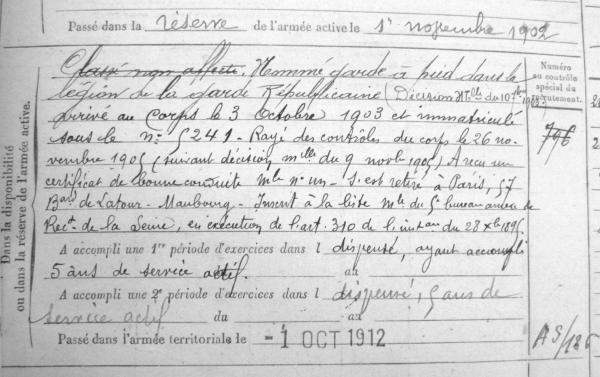 Passé dans la réserve de l'armée active le 1er novembre 1902
Classé non affecté. Nommé garde à pied dans la
légion de la garde Républicaine (Décision Mlle du 107bre 1903)
arrivé au Corps le 3 Octobre 1903 et immatriculé
sous le n° 5241 - Rayé des contrôles du corps le 26 no-
vembre 1905 (suivant décision mlle du 9 novbre 1905) A reçu un
certificat de bonne conduite mle n° un - S'est retiré à Paris, 57
Bard de Latour-Maubourg - Inscrit à la liste mle du 5e bureau annexe de
Rect de la Seine, en exécution de l'art. 310 de l'inston du 28 xbre 1895.
A accompli une 1re période d'exercices dans l dispensé, ayant accompli
5 ans de service actif. au
A accompli une 2e période d'exercices dans l dispensé, 5 ans de
service actif du au
Passé dans l'armée territoriale le -1 OCT 1912
Dans la disponibilité
ou dans la réserve de l'armée active.
Numéro
au contrôle
spécial du
recrutement.
796
AS/186